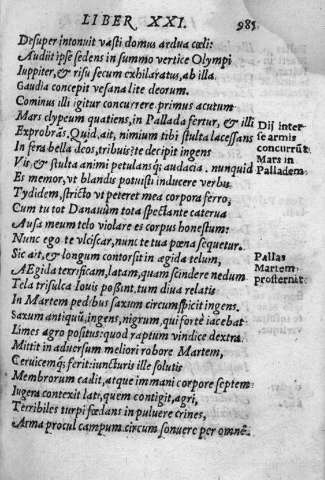 LIBER XXI. 985
Desuper intonuit vasti domus ardua cœli:
Audiit ipse sedens in summo vertice Olympi
Iuppiter, & risu secum exhilaratus, ab illa.
Gaudia concepit vesana lite deorum.
Cominus illi igitur concurrere primus acutum
Mars clypeum quatiens, in Pallada fertur, & illi
Exprobrās. Quid, ait, nimium tibi stulta lacessans
In fera bella deos, tribuis? te decipit ingens
Vis, & stulta animi petulansq; audacia. nunquid
Es memor, vt blandis potuisti inducere verbis
Tydidem, stricto vt peteret mea corpora ferro,
Cum tu tot Danaūm tota spectante caterua
Ausa meum telo violare es corpus honestum:
Nunc ego te vlciscar, nunc te tua pœna sequetur.
Sic ait, & longum contorsit in ægida telum,
AEgida terrificam, latam, quam scindere nedum
Tela trisulca Iouis possint, tum diua relatis
In Martem pedibus saxum circumspicit ingens.
Saxum antiquū, ingens, nigrum, qui fortè iacebat
Limes agro positus: quod raptum vindice dextra
Mittit in aduersum meliori robore Martem,
Ceruicemq; ferit: iuncturis ille solutis
Membrorum cadit, atque immani corpore septem
Iugera contexit lati, quem contigit, agri,
Terribiles turpi fœdans in puluere crines,
Arma procul campum circum sonuere per omnē.
Dij inter
se armis
concurrūt
Mars in
Palladem.
Pallas
Martem
prosternit.